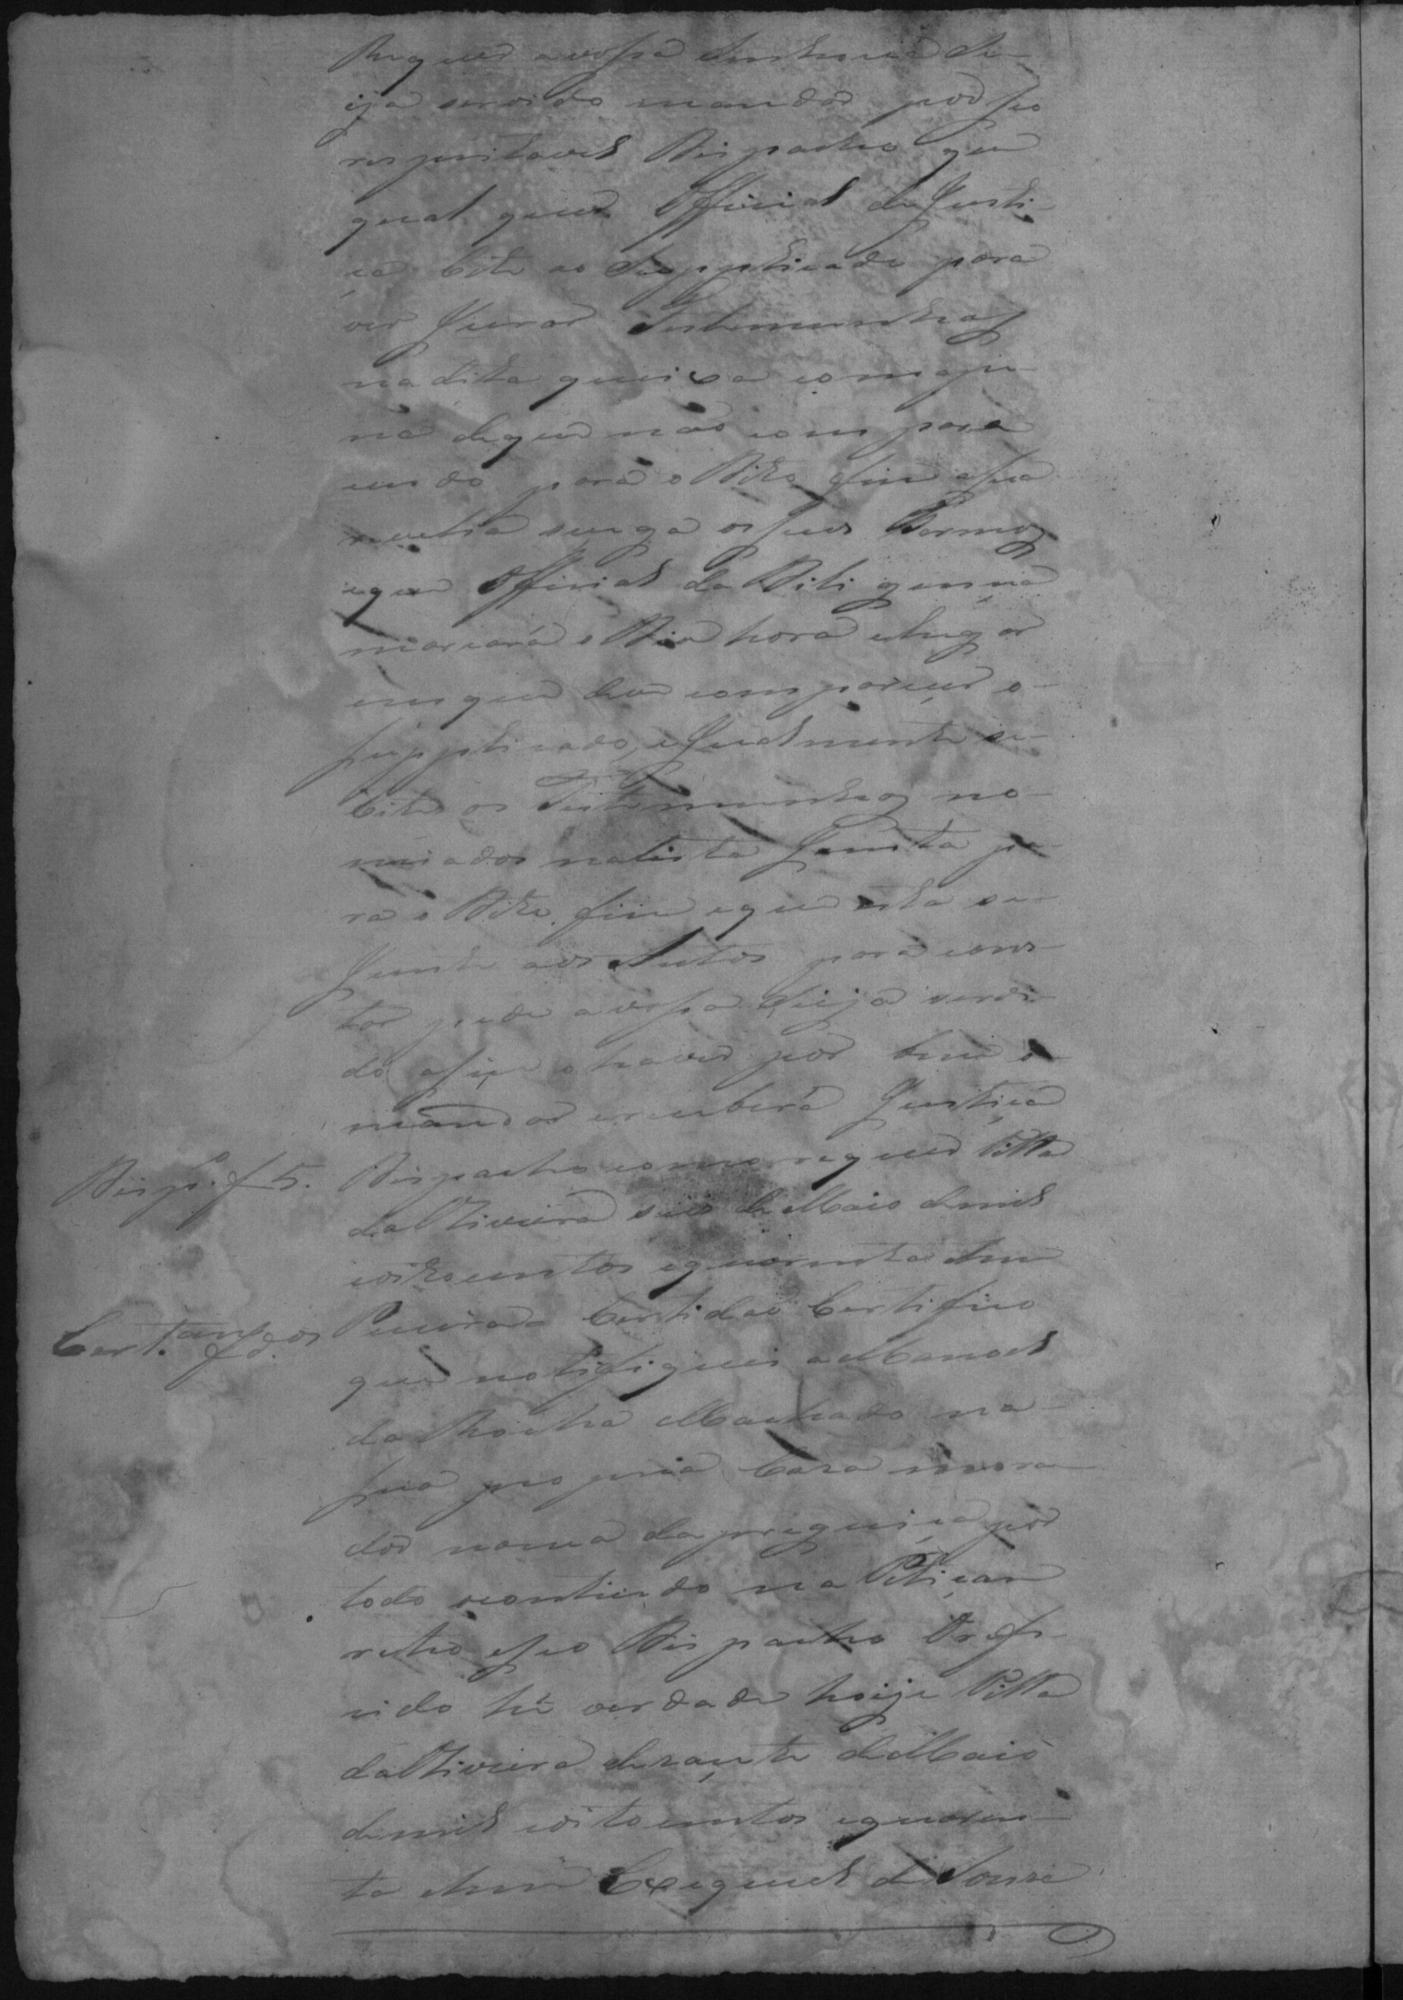 Requer a vossa Senhoria Se-
ija servido mandar por seo
respeitavel Despacho que
qual quer Official de Justi-
ça Cite ao Supplicado para
ver Jurar Testemunhas
na dita queixa com a pe-
na de que não compare
cendo para o Dito fim a sua
revelia seuga os seus Termos
e que Official da Deligencia
marcará o Dia hora e lugar
em que deve comparecer o
supplicado, e igualmente se
Cite as Testemunhas no-
miadas na lista Junta pa-
ra o Dito fim e que esta se
Junte aos Autos para cons-
tar pede a vossa Seija servi-
do assim o haver por bem o
mandar e receberá Justiça
Disp.º f 5. Despacho como requer Villa
da Oliveira seis de Maio de mil
oitocentos e quarenta e hum
Cert.am f d.os Pereira Certidão Certifico
que notifiquei a Manoel
da Rocha Machado na
sua propria Casa mora
dor na rua da preguiça por
todo contiudo na Petiçam
retro e seo Despacho O refe-
rido hé verdade hoije Villa
da Oliveira de Maio
de mil oitocentos e quaren-
ta e hum Exequiel de Souza